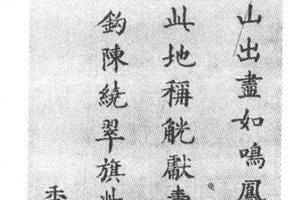 山出盡如鳴鳳
此地稱觥獻壽
鈎陳繞翠旗